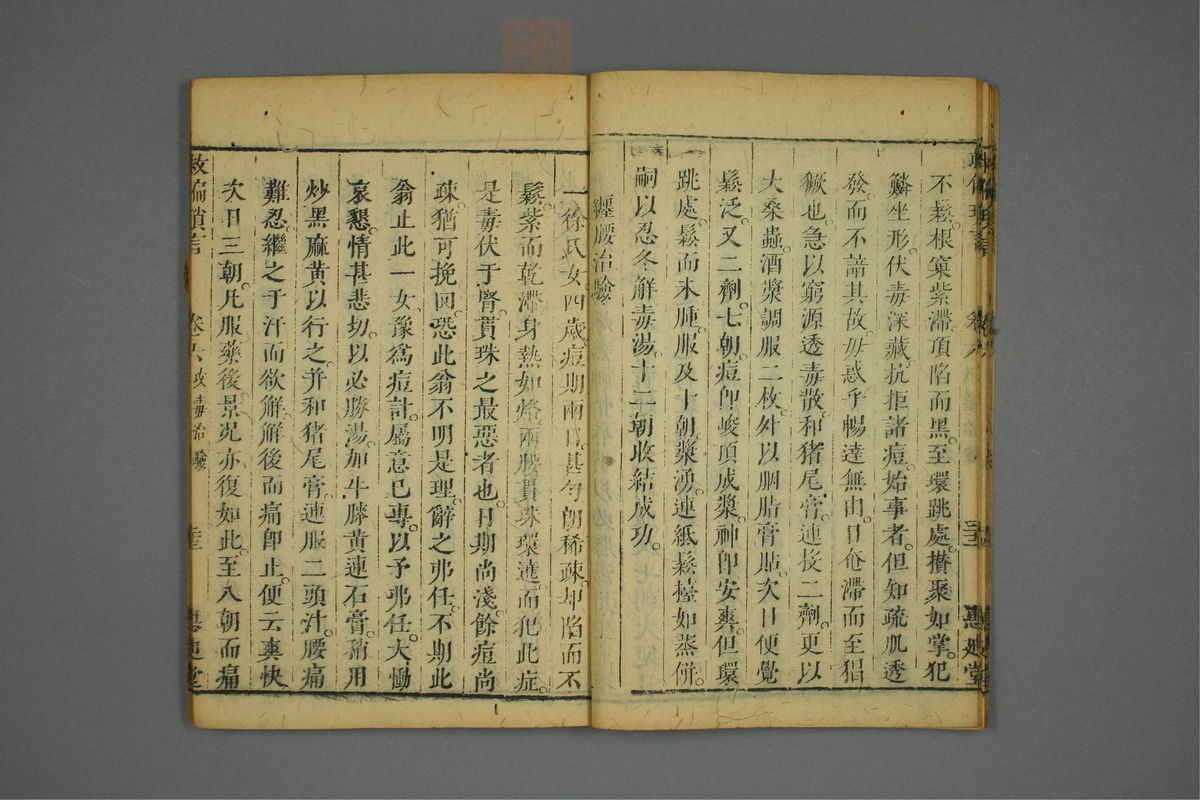 不鬆。根窠紫滯。頂陷而黑。至環跳處。攢聚如掌。犯
鱗坐形。伏毒深藏。抗拒諸痘。始事者。但知疏肌透
發。而不諳其故。毋惑乎暢達無由。日奄滯而至猖
獗也。急以窮源透毒散。和猪尾膏。連投二劑。更以
大桑蟲。酒漿調服二枚。外以胭脂膏貼。次日便覺
鬆泛。又二劑。七朝。痘卽峻頂成漿。神卽安爽。但環
跳處。鬆而未腫。服及十朝。漿湧。連紙鬆擡如蒸餅。
嗣以忍冬解毒湯。十二朝收結成功。
纏腰治驗
一徐氏女。四歲。痘期兩日。甚勻朗稀疎。却陷而不
鬆。紫而乾滯。身熱如烙。兩腰貫珠環遶。而犯此症。
是毒伏于腎。貫珠之最惡者也。日期尚淺。餘痘尚
疎。猶可挽回。恐此翁不明是理。辭之弗任。不期此
翁止此一女。豫爲痘計。屬意已專。以予弗任。大慟
哀懇。情甚悲切。以必勝湯。加牛膝黃連石膏。稍用
炒黑麻黃以行之。并和猪尾膏。連服二頭汁。腰痛
難忍。繼之于汗而欲解。解後而痛卽止。便云爽快
次日三朝。凡服藥後。景况亦復如此。至八朝而痛
救偏瑣言
卷六
攻毒治驗
惠迪堂